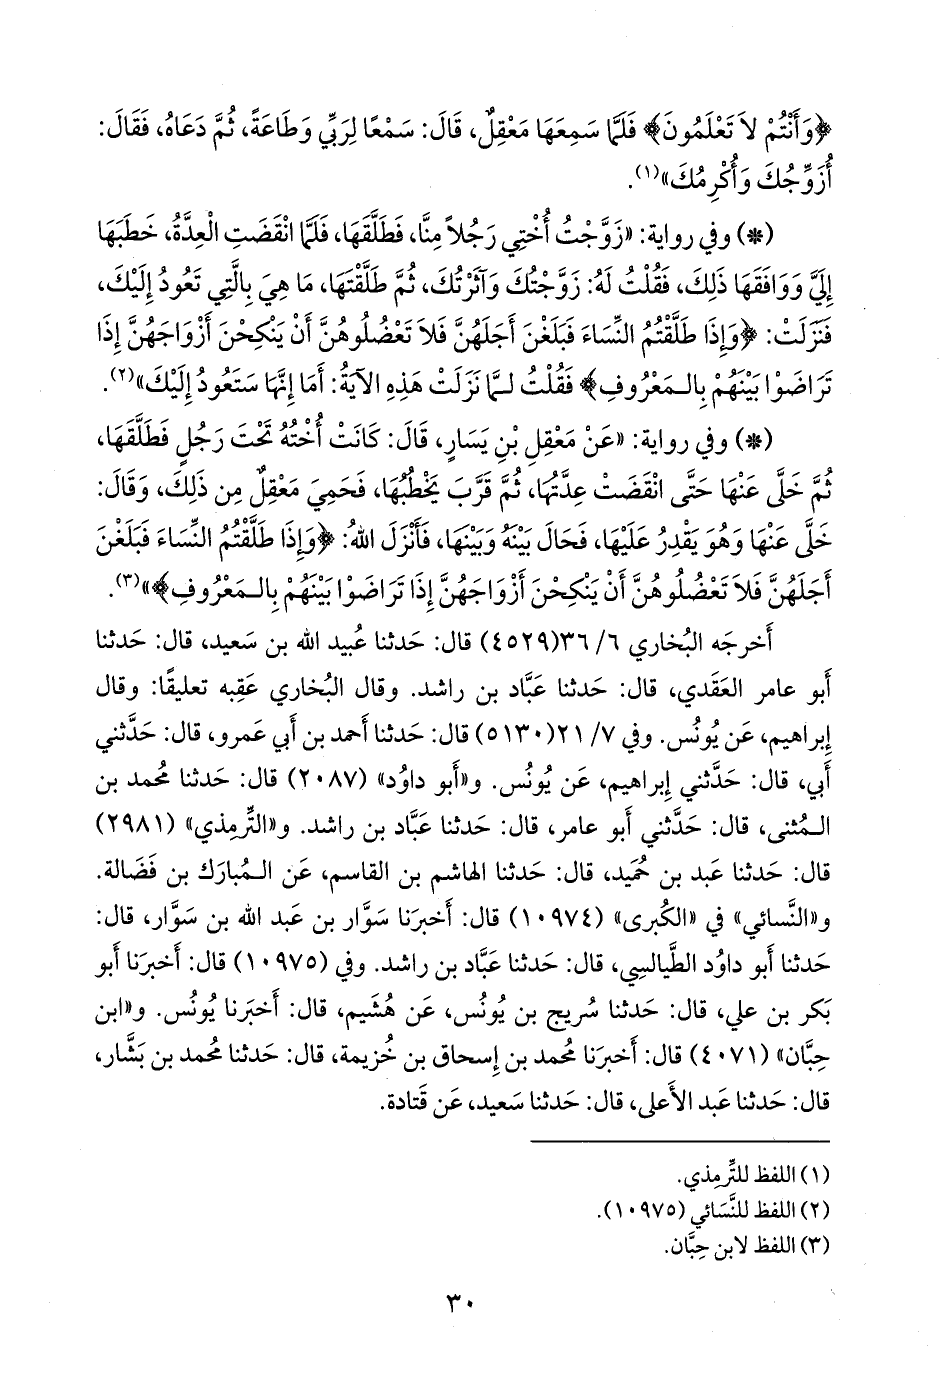 ﴿وَأَنْتُمْ لاَ تَعْلَمُونَ﴾ فَلَمَّا سَمِعَهَا مَعْقِلٌ، قَالَ: سَمْعًا لِرَبِّي وَطَاعَةً، ثُمَّ دَعَاهُ، فَقَالَ:
أُزَوِّجُكَ وَأُكْرِمُكَ»(١).
(*) وفي رواية: «زَوَّجْتُ أُخْتِي رَجُلاً مِنَّا، فَطَلَّقَهَا، فَلَمَّا انْقَضَتِ الْعِدَّةُ، خَطَبَهَا
إِلَيَّ وَوَافَقَهَا ذَلِكَ، فَقُلْتُ لَهُ: زَوَّجْتُكَ وَآثَرْتُكَ، ثُمَّ طَلَّقْتَهَا، مَا هِيَ بِالَّتِي تَعُودُ إِلَيْكَ،
فَنَزَلَتْ: ﴿وَإِذَا طَلَّقْتُمُ النِّسَاءَ فَبَلَغْنَ أَجَلَهُنَّ فَلاَ تَعْضُلُوهُنَّ أَنْ يَنْكِحْنَ أَزْوَاجَهُنَّ إِذَا
تَرَاضَوْا بَيْنَهُمْ بِالـمَعْرُوفِ﴾ فَقُلْتُ لـمَّا نَزَلَتْ هَذِهِ الآيَةُ: أَمَا إِنَّهَا سَتَعُودُ إِلَيْكَ»(٢).
(*) وفي رواية: «عَنْ مَعْقِلِ بْنِ يَسَارٍ، قَالَ: كَانَتْ أُخْتُهُ تَحْتَ رَجُلٍ فَطَلَّقَهَا،
ثُمَّ خَلَّى عَنْهَا حَتَّى انْقَضَتْ عِدَّتُهَا، ثُمَّ قَرَّبَ يَخْطُبُهَا، فَحَمِيَ مَعْقِلٌ مِن ذَلِكَ، وَقَالَ:
خَلَّى عَنْهَا وَهُوَ يَقْدِرُ عَلَيْهَا، فَحَالَ بَيْنَهُ وَبَيْنَهَا، فَأَنْزَلَ اللهُ: ﴿وَإِذَا طَلَّقْتُمُ النِّسَاءَ فَبَلَغْنَ
أَجَلَهُنَّ فَلاَ تَعْضُلُوهُنَّ أَنْ يَنْكِحْنَ أَزْوَاجَهُنَّ إِذَا تَرَاضَوْا بَيْنَهُمْ بِالـمَعْرُوفِ﴾»(٣).
أَخرجَه البُخاري ٦/ ٣٦(٤٥٢٩) قال: حَدثنا عُبيد الله بن سَعيد، قال: حَدثنا
أبو عامر العَقَدي، قال: حَدثنا عَبَّاد بن راشد. وقال البُخاري عَقِبه تعليقًا: وقال
إبراهيم، عَن يُونُس. وفي ٧/ ٢١(٥١٣٠) قال: حَدثنا أَحمد بن أبي عمرو، قال: حَدَّثني
أبي، قال: حَدَّثني إبراهيم، عَن يُونُس. و«أبو داوُد» (٢٠٨٧) قال: حَدثنا مُحمد بن
الـمُثنى، قال: حَدَّثني أبو عامر، قال: حَدثنا عَبَّاد بن راشد. و«التِّرمِذي» (٢٩٨١)
قال: حَدثنا عَبد بن حُميد، قال: حَدثنا الهاشم بن القاسم، عَن الـمُبارك بن فَضالة.
و«النَّسائي» في «الكُبرى» (١٠٩٧٤) قال: أَخبرَنا سَوَّار بن عَبد الله بن سَوَّار، قال:
حَدثنا أبو داوُد الطَّيالسِي، قال: حَدثنا عَبَّاد بن راشد. وفي (١٠٩٧٥) قال: أَخبرَنا أبو
بَكر بن علي، قال: حَدثنا سُريج بن يُونُس، عَن هُشَيم، قال: أَخبَرنا يُونُس. و«ابن
حِبَّان» (٤٠٧١) قال: أَخبرَنا مُحمد بن إسحاق بن خُزيمة، قال: حَدثنا مُحمد بن بَشَّار،
قال: حَدثنا عَبد الأَعلى، قال: حَدثنا سَعيد، عَن قَتادة.
(١) اللفظ للتِّرمِذي.
(٢) اللفظ للنَّسَائي (١٠٩٧٥).
(٣) اللفظ لابن حِبَّان.
٣٠